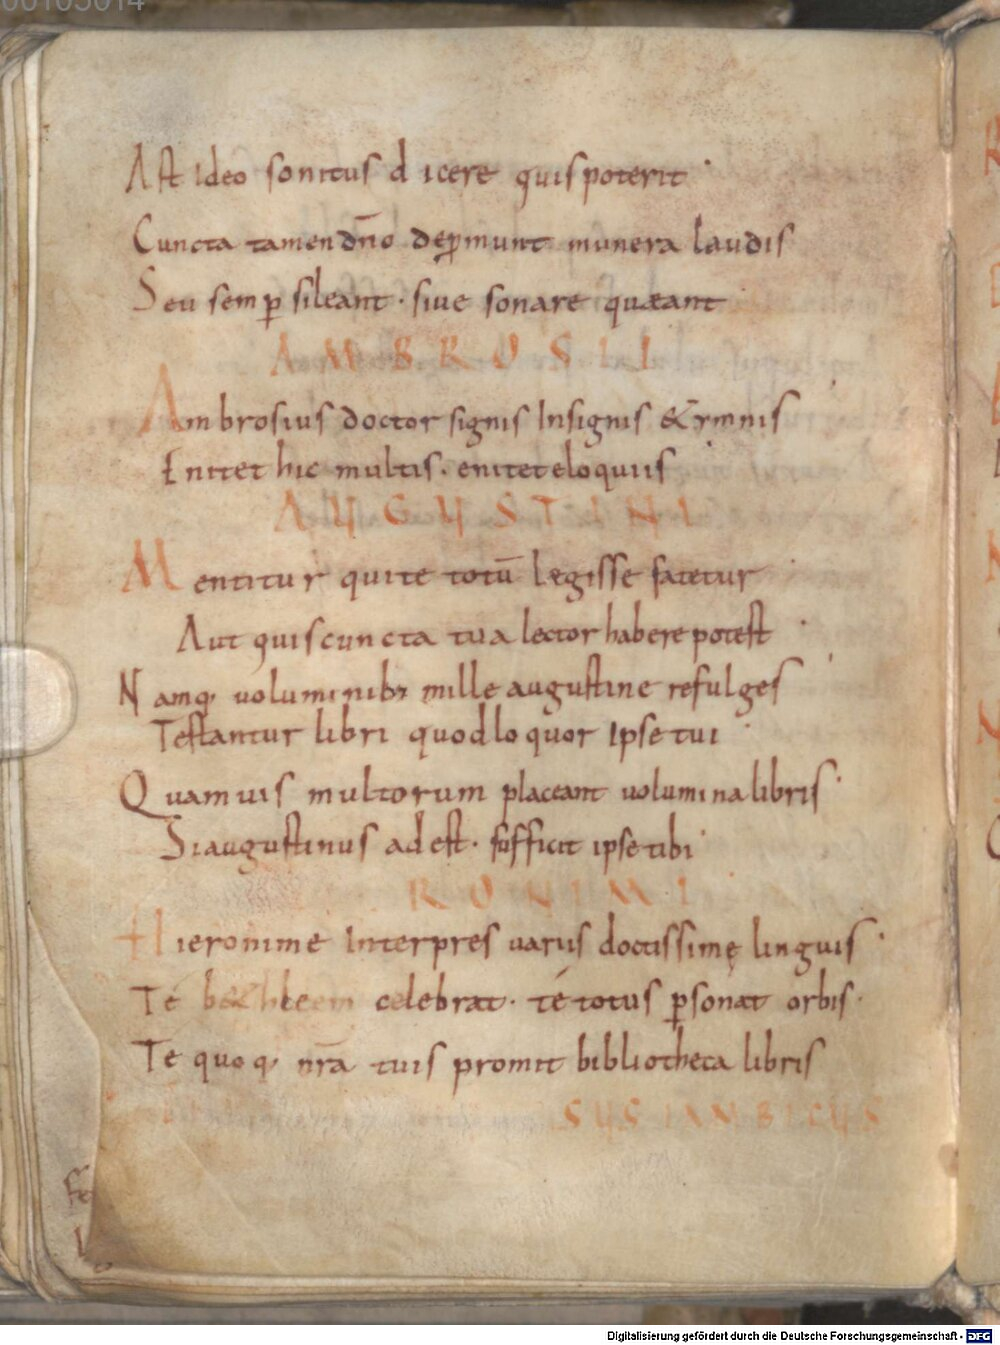 00105014
Ast ideo sonitus dicere quis poterit
Cuncta tamen dn̄o deꝓmunt munera laudis
Seu semꝑ sileant · siue sonare queant
AMBROSII
Ambrosius doctor signis Insignis & ymnis
Enitet hic multis · enitet eloquiis
AUGUSTINI
Mentitur qui te totū legisse fatetur
Aut quis cuncta tua lector habere potest
Namq, uoluminibꝫ mille augustine refulges
Testantur libri quod loquor Ipse tui
Quamuis multorum placeant uolumina libris
Si augustinus adest · sufficit ipse tibi
RONIMI
Hieronime Interpres uariis doctissimę linguis
Té b&hleem celebrat · té totus ꝑsonat orbis
Te quoq, nr̄a tuis promit bibliotheca libris
SUS IAMBICUS
Digitalisierung gefördert durch die Deutsche Forschungsgemeinschaft - DFG